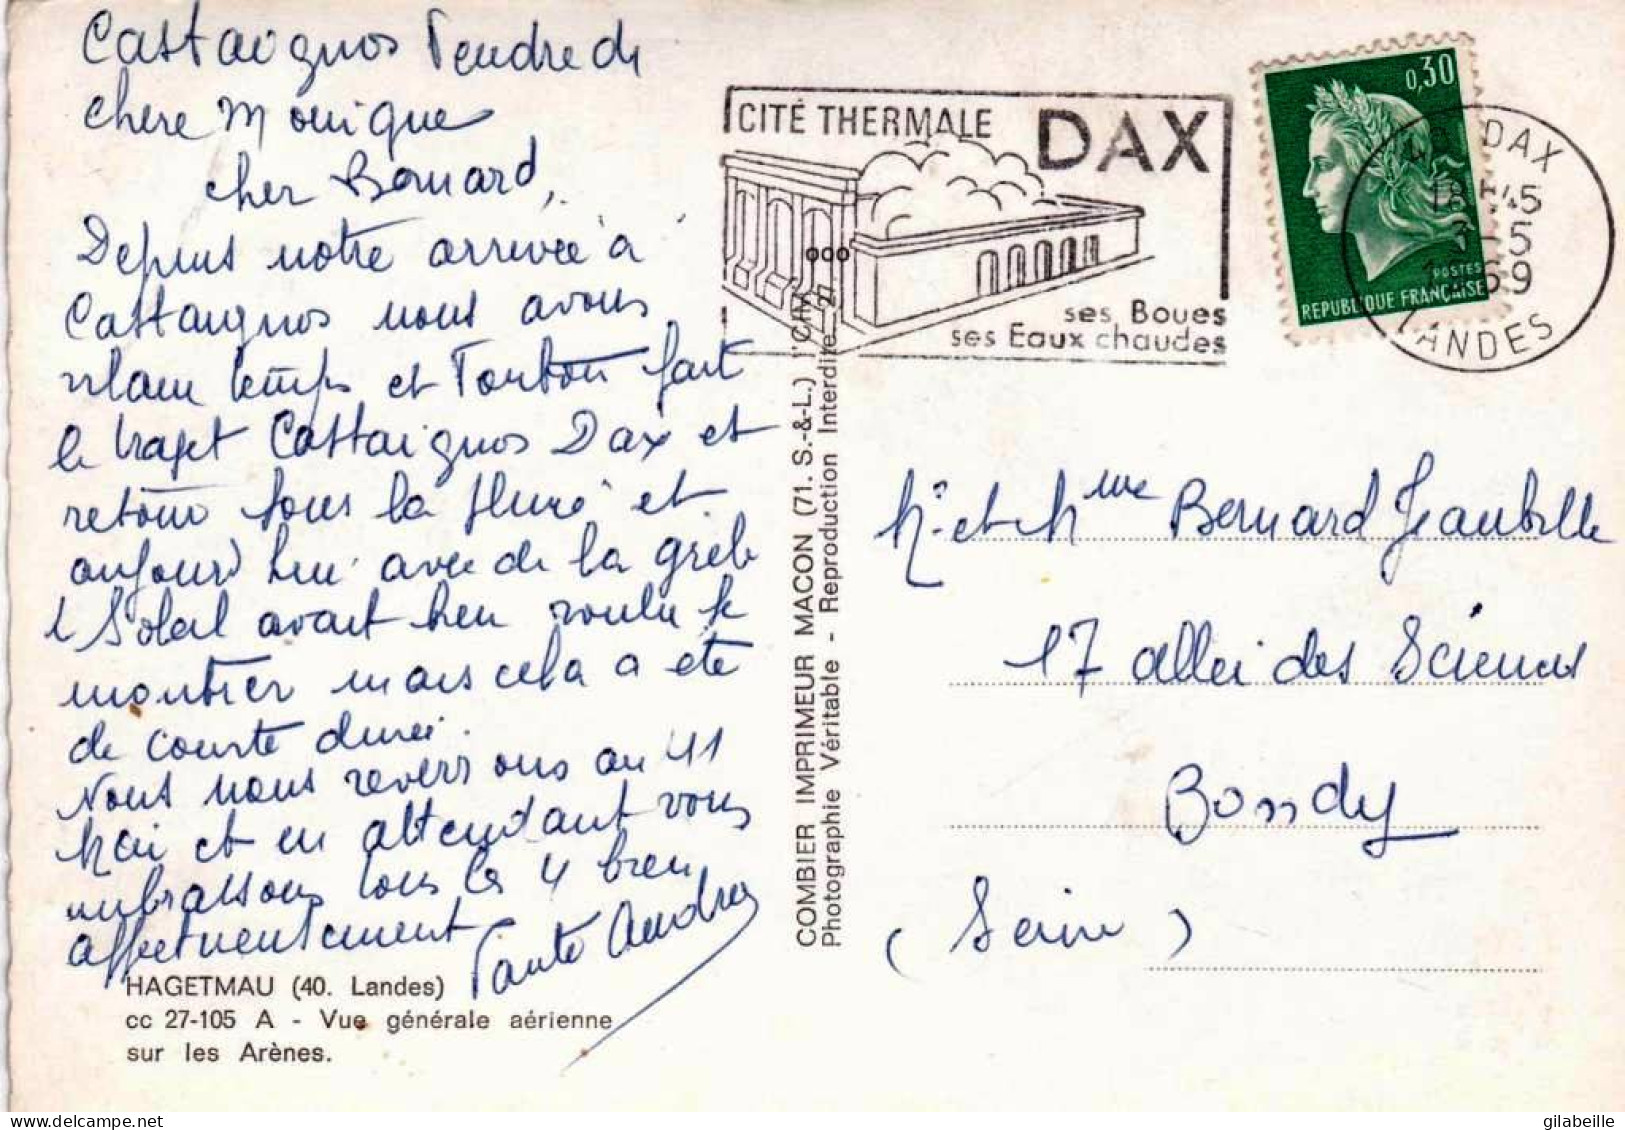 Castaignos Vendredi
chere Monique
cher Bernard,
Depuis notre arrivée à
Castaignos nous avons
vilain temps et Tonton fait
le trajet Castaignos Dax et
retour sous la pluie et
aujourd'hui avec de la grele
l Soleil avait bien voulu se
montrer mais cela a été
de courte durée.
Nous nous reverrons au 11
Mai et en attendant vous
embrassons tous les 4 bien
affectueusement
Tante Andrée
HAGETMAU (40. Landes)
cc 27-105 A - Vue générale aérienne
sur les Arènes.
COMBIER IMPRIMEUR MACON (71. S.-&-L.)
Photographie Véritable - Reproduction Interdite
CITÉ THERMALE DAX
ses Boues
ses Eaux chaudes
0,30
POSTES
REPUBLIQUE FRANÇAISE
DAX
18 H 45
5
1969
LANDES
Mr et Mme Bernard Jeanbille
17 allée des Sciences
Bondy
(Seine)
gilabeille